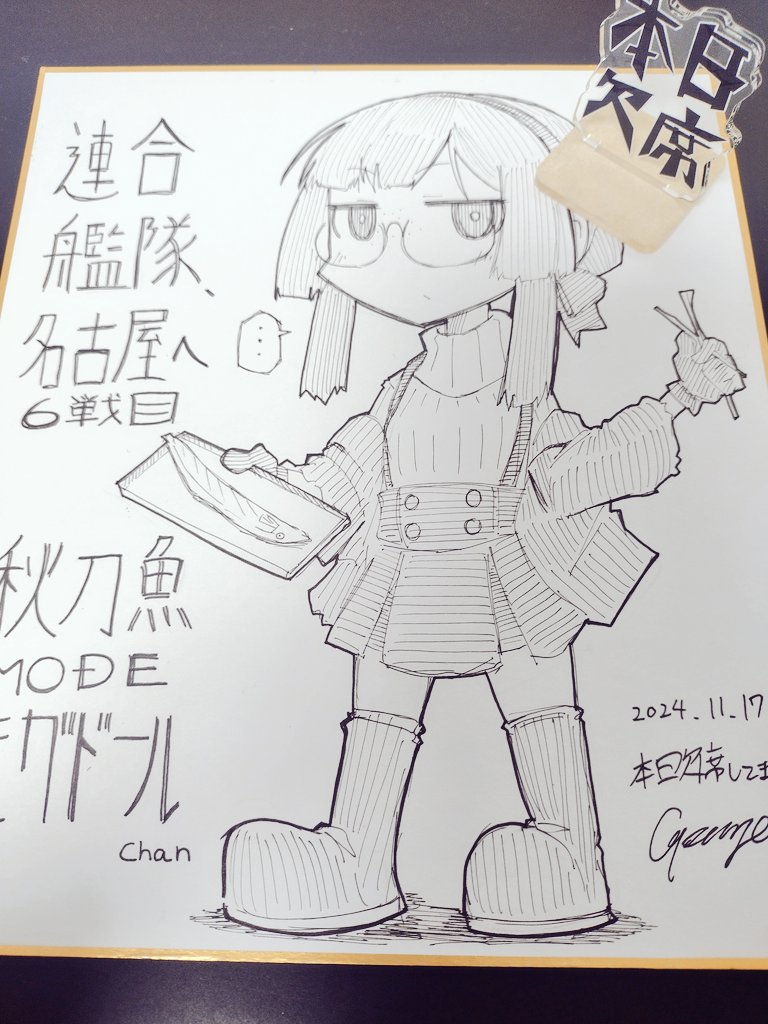 本日
欠席
連合
艦隊、
名古屋へ
6戦目
秋刀魚
MODE
モグドール
chan
2024.11.17
本日欠席してま